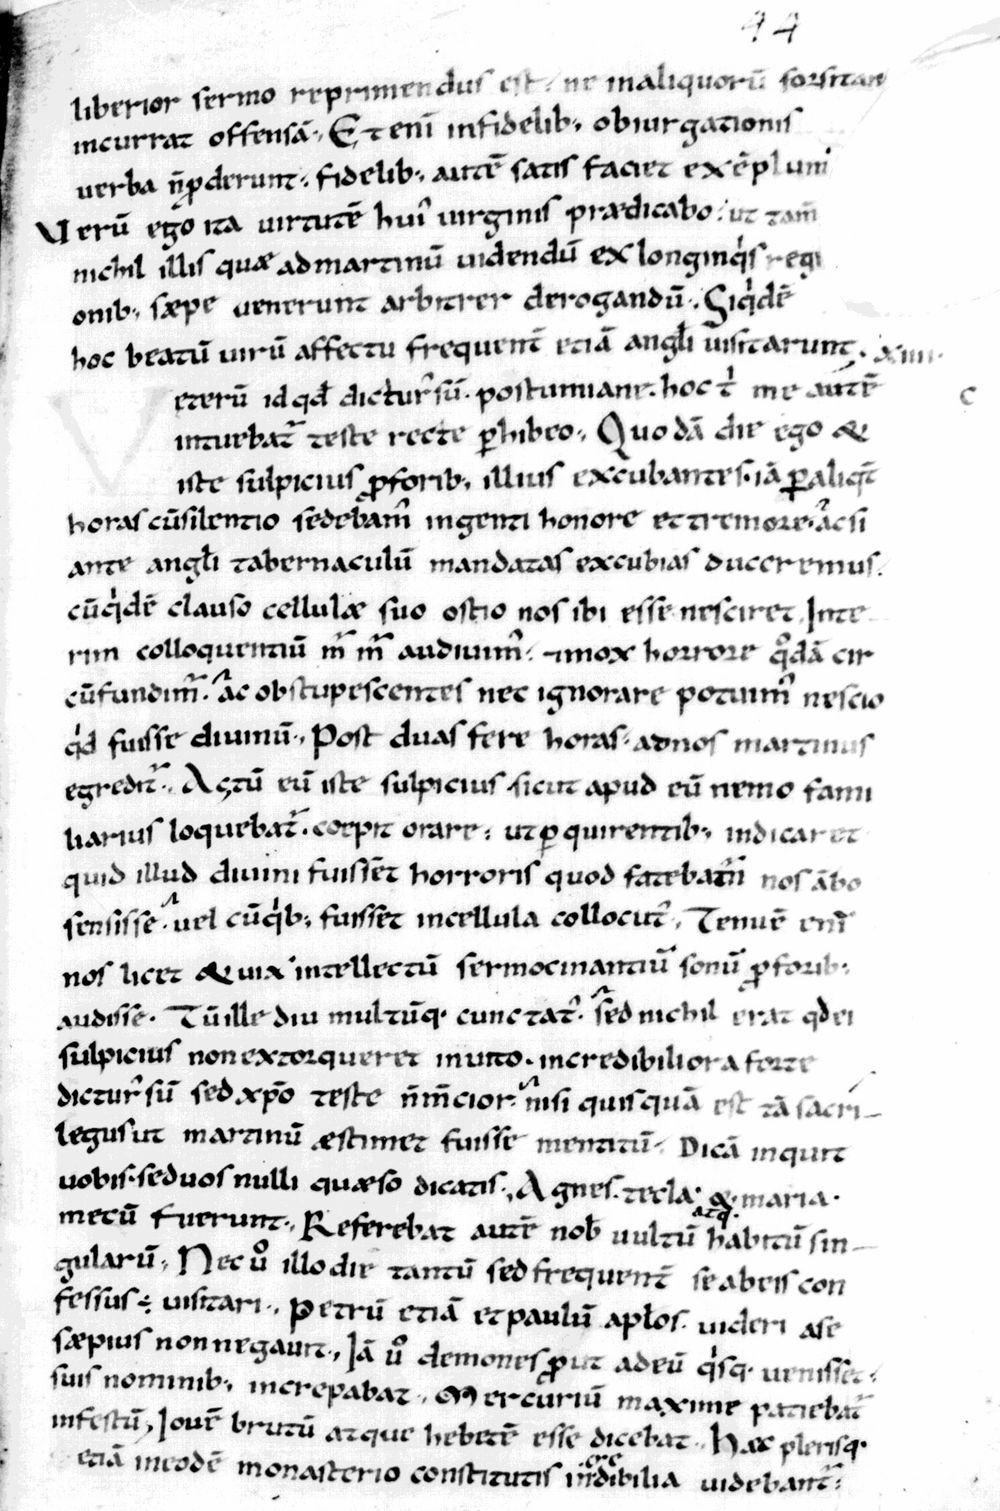 44
liberior sermo reprimendus est· ne in aliquorū forsitan
incurrat offensā·, Et eni᷆ infidelib;, obiurgationis
verba n̄ ꝓderunt·, fidelib;, autē satis faciet exēplum
Verū ego ita virtutē hui᷒ virginis prædicabo· ut tam̄
nichil illis quæ ad martinū videndū ex longinq̇s regi
onib;, sæpe venerunt arbitrer derogandū·, Siq̇dē
hoc beatū virū affectu frequent̄ etiā angl̄i visitarunt, xiiii·
eterū id qd̄ dictur᷒ sū· postumiane· hoc t̄ me autē
intuebat᷑ teste recte ꝑhibeo·, Quodā die ego &
iste sulpicius ꝓ forib;, illius excubantes· iā ꝑ aliqt̄
horas cū silentio sedebam᷒ ingenti honore et tremore· ac si
ante angl̄i tabernaculū mandatas excubias duceremus·
cū q̇dē clauso cellulæ suo ostio nos ibi esse nesciret· Inte
rim colloquentiū m̄ m̄ audiuim᷒· & mox horrore qͦdā cir
cūfundim᷒· ac obstupescentes nec ignorare potuim᷒ nescio
q̇d fuisse diuinū·, Post duas fere horas· ad nos martinus
egredit᷑·, Ac tū eū iste sulpicius· sicut apud eū nemo fami
liarius loquebat᷑· coepit orare· ut ꝑquirentib;, indicaret
quid illud diuini fuisset horroris quod fatebam᷒ nos ābo
sensisse· vel cū q̇b;, fuisset in cellula collocut᷒·, Tenuē eni᷆
nos licet & vix intellectū sermocinantiū sonū ꝓ forib;,
audisse· Tū ille diu multūq· cunctat᷒· sed nichil erat qd ei
sulpicius non extorqueret inuito· incredibiliora forte
dictur᷒ sū sed xp̄o teste n̄ m̄cior· nisi quisquā est tā sacri
legus ut martinū æstimet fuisse mentitū· Dicā inquit
vobis· sed vos nulli quæso dicatis·, Agnes· tecla· &· maria·
mecū fuerunt·, Referebat autē nob̄ vultū atq· habitū sin
gularū·, Nec uͦ illo die tantū sed frequent̄ se ab eis con
fessus ÷ visitari·, Petrū etiā et paulū apl̄os· videri a se
sæpius non negauit·, Iā uͦ demones ꝓut ad eū q̇sq· venisset·
suis nominib;, increpabat·, Mercuriū maxime patiebat᷑
infestū, Iouē brutū atque hebetē esse dicebat·, Hæc plerisq·
etiā in eodē monasterio constitutis incredibilia videbant᷑·